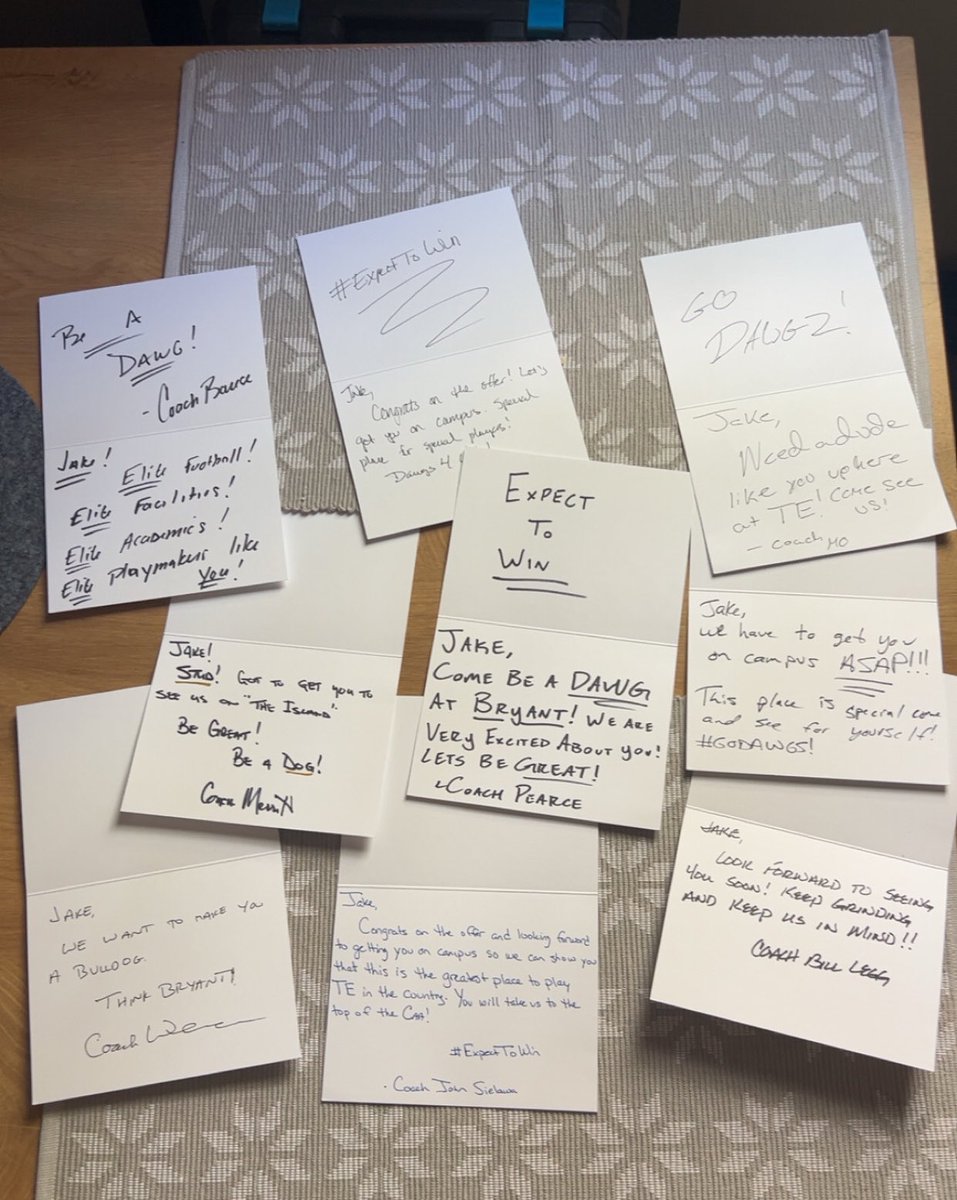 Be A
DAWG!
- Coach
Jake!
Elite Football!
Elite Facilities!
Elite Academics!
Elite Playmakers like
You!
#ExpectToWin
Jake,
Congrats on the offer! Let's
get you on campus. Special
place for special players!
Dawgs 4
GO
DAWGZ!
Jake,
Need a dude
like you up here
at TE! Come see
us!
- Coach MO
JAKE!
STUD! GOT TO GET YOU TO
SEE US ON "THE ISLAND".
BE GREAT!
BE A DOG!
COACH
EXPECT
TO
WIN
JAKE,
COME BE A DAWG
AT BRYANT! WE ARE
VERY EXCITED ABOUT YOU!
LETS BE GREAT!
COACH PEARCE
Jake,
we have to get you
on campus ASAP!!!
This place is special come
and see for yourself!
#GODAWGS!
JAKE,
WE WANT TO MAKE YOU
A BULLDOG.
THINK BRYANT!
Coach
Jake,
Congrats on the offer and looking forward
to getting you on campus so we can show you
that this is the greatest place to play
TE in the country. You will take us to the
top of the CAA!
#ExpectToWin
- Coach John
JAKE,
LOOK FORWARD TO SEEING
YOU SOON! KEEP GRINDING
AND KEEP US IN MIND!!
COACH BILL LEGG